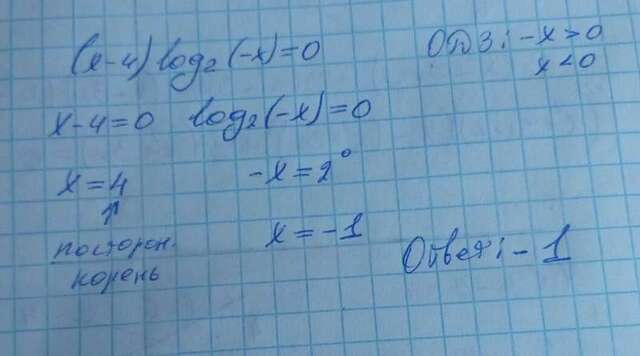 (x-4) log₂(-x)=0
ОДЗ: -x>0
x<0
x-4=0 log₂(-x)=0
x=4 -x=2⁰
↑
посторон. x=-1
корень
Ответ: -1